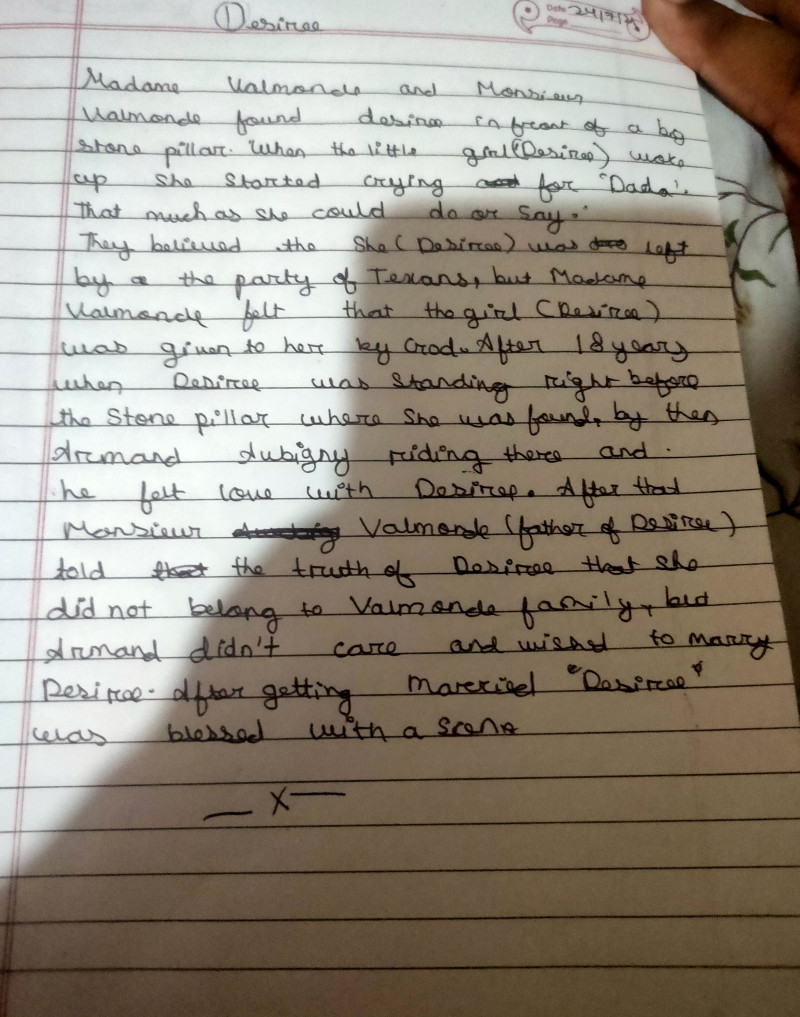 ① Desiree
Date 24/7/21
Page
Madame Valmonde and Monsieur
Valmonde found desiree in front of a big
stone pillar. When the little girl (Desiree) woke
up she started crying for "Dada".
That much as she could do or say.
They believed the She (Desiree) was left
by the party of Texans, but Madame
Valmonde felt that the girl (Desiree)
was given to her by God. After 18 years
when Desiree was standing right before
the Stone pillar where She was found, by then
Armand Aubigny riding there and.
he felt love with Desiree. After that
Monsieur Valmonde (father of Desiree)
told the truth of Desiree that she
did not belong to Valmonde family, but
Armand didn't care and wished to marry
Desiree. After getting Marexied "Desiree"
was blessed with a
— X —